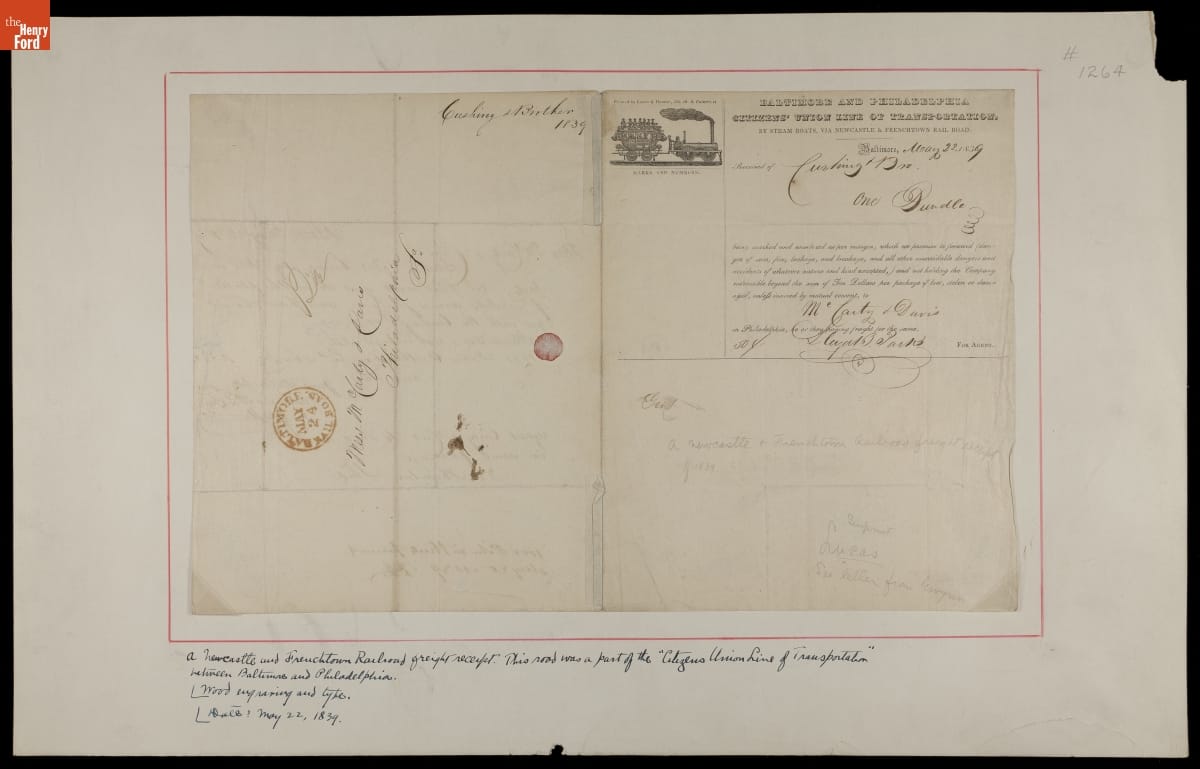 the
Henry
Ford
#
1264
Cushing & Brother
1839
Mess McCarty & Davis
Philadelphia
BALTIMORE
MAY
24
BALTIMORE AND PHILADELPHIA
CITIZENS' UNION LINE OF TRANSPORTATION,
BY STEAM BOATS, VIA NEWCASTLE & FRENCHTOWN RAIL ROAD.
MARKS AND NUMBERS.
Baltimore, May 22 1839
Received of Cushing & Bro.
One Bundle
being marked and numbered as per margin, which we promise to forward (dan-
gers of seas, fire, leakage, and breakage, and all other unavoidable dangers and
accidents of whatever nature and kind excepted,) and not holding the Company
answerable beyond the sum of Ten Dollars per package if lost, stolen or dam-
aged, unless insured by mutual consent, to
McCarty & Davis
in Philadelphia, he or they paying freight for the same.
FOR AGENT.
A Newcastle & Frenchtown Railroad freight receipt
of 1839
Lucas
See letter from
A Newcastle and Frenchtown Railroad freight receipt. This road was a part of the "Citizens Union Line of Transportation"
between Baltimore and Philadelphia.
Wood engraving and type.
Date: May 22, 1839.